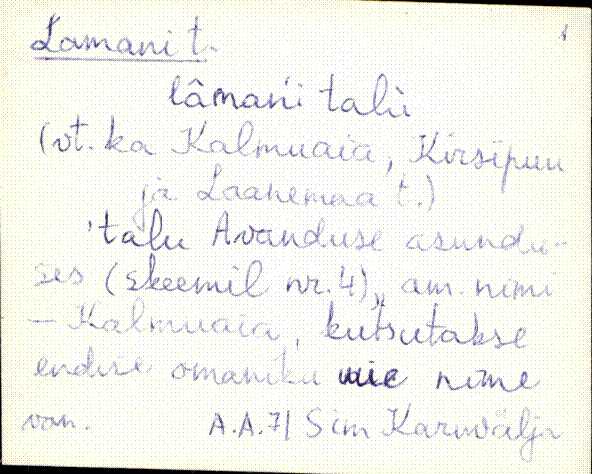 Lamani t. 1
lamańi talu
(vt. ka Kalmuaia, Kirsipuu
ja Laanemaa t.)
'talu Avanduse asundu-
ses (skeemil nr. 4), am. nimi
– Kalmuaia, kutsutakse
endise omaniku nime
van. A.A. 71 Sim Karuvälja